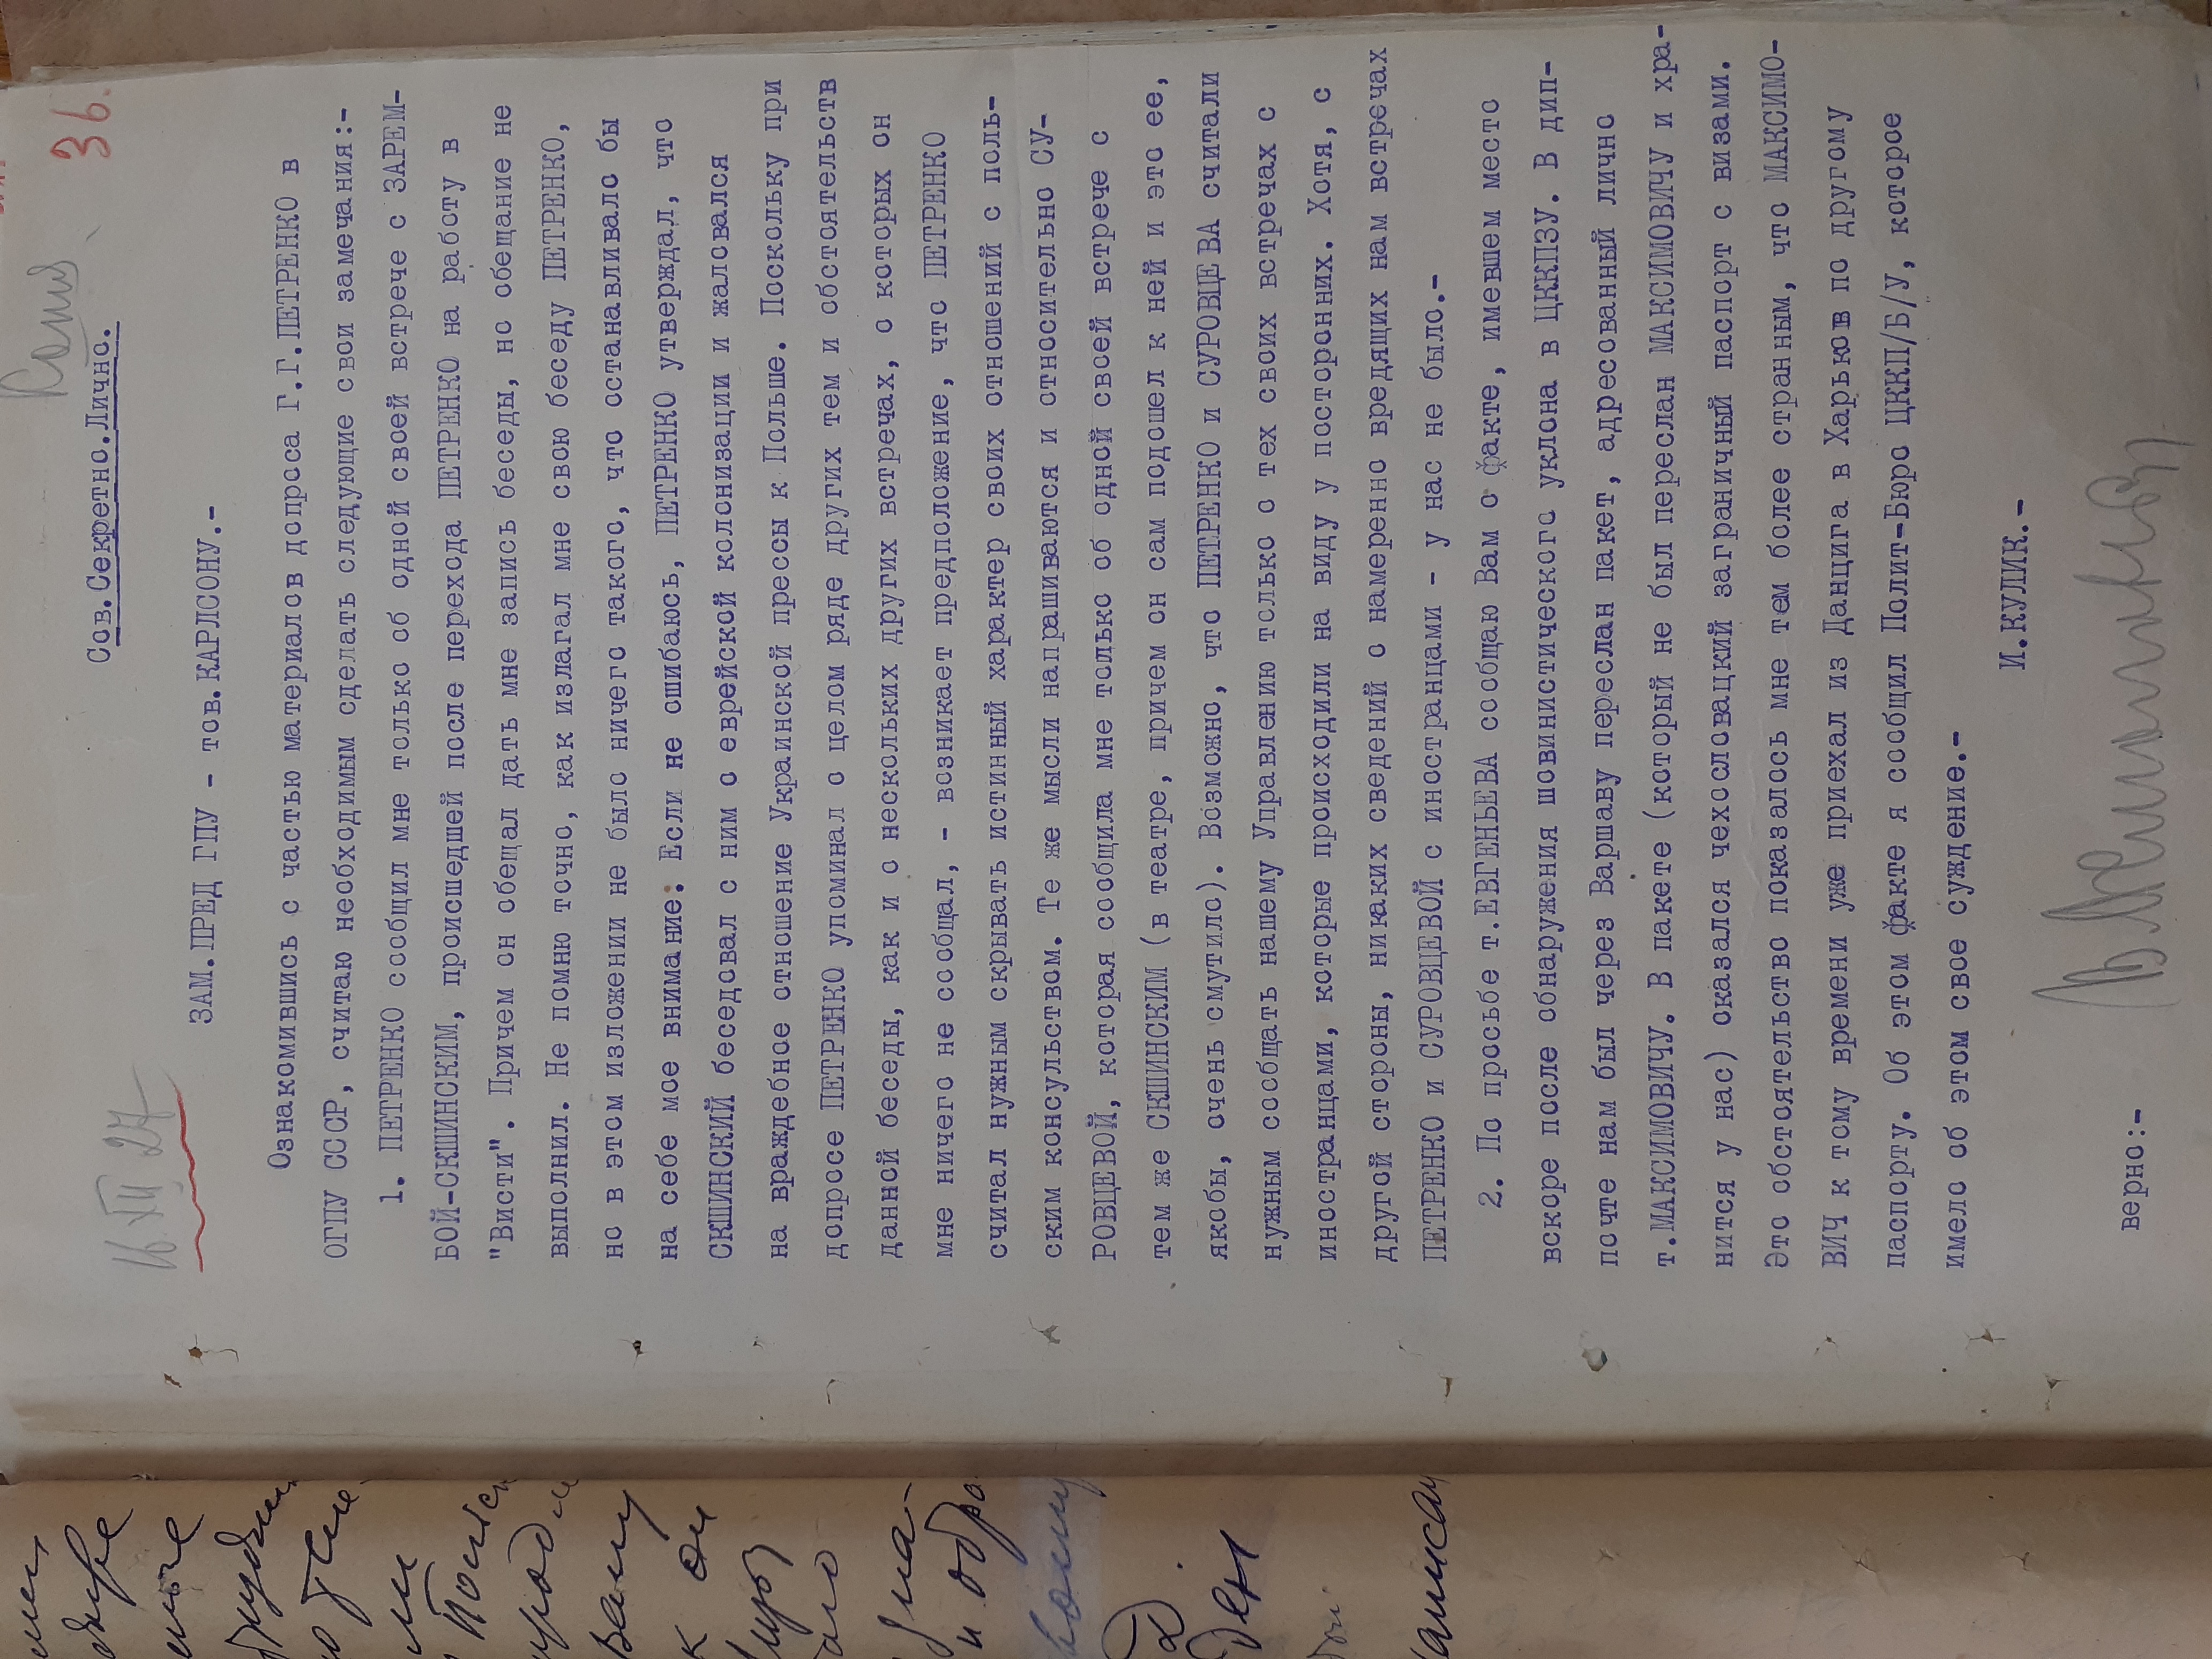 Копия
36.
Сов.Секретно.Лично.
16 XII 27
ЗАМ.ПРЕД ГПУ - тов.КАРЛСОНУ.-
Ознакомившись с частью материалов допроса Г.Г.ПЕТРЕНКО в
ОГПУ СССР, считаю необходимым сделать следующие свои замечания:-
1. ПЕТРЕНКО сообщил мне только об одной своей встрече с ЗАРЕМ-
БОЙ-СКШИНСКИМ, происшедшей после перехода ПЕТРЕНКО на работу в
"Висти". Причем он обещал дать мне запись беседы, но обещание не
выполнил. Не помню точно, как излагал мне свою беседу ПЕТРЕНКО,
но в этом изложении не было ничего такого, что останавливало бы
на себе мое внимание: Если не ошибаюсь, ПЕТРЕНКО утверждал, что
СКШИНСКИЙ беседовал с ним о еврейской колонизации и жаловался
на враждебное отношение Украинской прессы к Польше. Поскольку при
допросе ПЕТРЕНКО упоминал о целом ряде других тем и обстоятельств
данной беседы, как и о нескольких других встречах, о которых он
мне ничего не сообщал, - возникает предположение, что ПЕТРЕНКО
считал нужным скрывать истинный характер своих отношений с поль-
ским консульством. Те же мысли напрашиваются и относительно СУ-
РОВЦЕВОЙ, которая сообщила мне только об одной своей встрече с
тем же СКШИНСКИМ (в театре, причем он сам подошел к ней и это ее,
якобы, очень смутило). Возможно, что ПЕТРЕНКО и СУРОВЦЕВА считали
нужным сообщать нашему Управлению только о тех своих встречах с
иностранцами, которые происходили на виду у посторонних. Хотя, с
другой стороны, никаких сведений о намеренно вредящих нам встречах
ПЕТРЕНКО и СУРОВЦЕВОЙ с иностранцами - у нас не было.-
2. По просьбе т.ЕВГЕНЬЕВА сообщаю Вам о факте, имевшем место
вскоре после обнаружения шовинистического уклона в ЦККПЗУ. В дип-
почте нам был через Варшаву переслан пакет, адресованный лично
т.МАКСИМОВИЧУ. В пакете (который не был переслан МАКСИМОВИЧУ и хра-
нится у нас) оказался чехословацкий заграничный паспорт с визами.
Это обстоятельство показалось мне тем более странным, что МАКСИМО-
ВИЧ к тому времени уже приехал из Данцига в Харьков по другому
паспорту. Об этом факте я сообщил Полит-Бюро ЦККП/Б/У, которое
имело об этом свое суждение.-
И.КУЛИК.-
верно:-